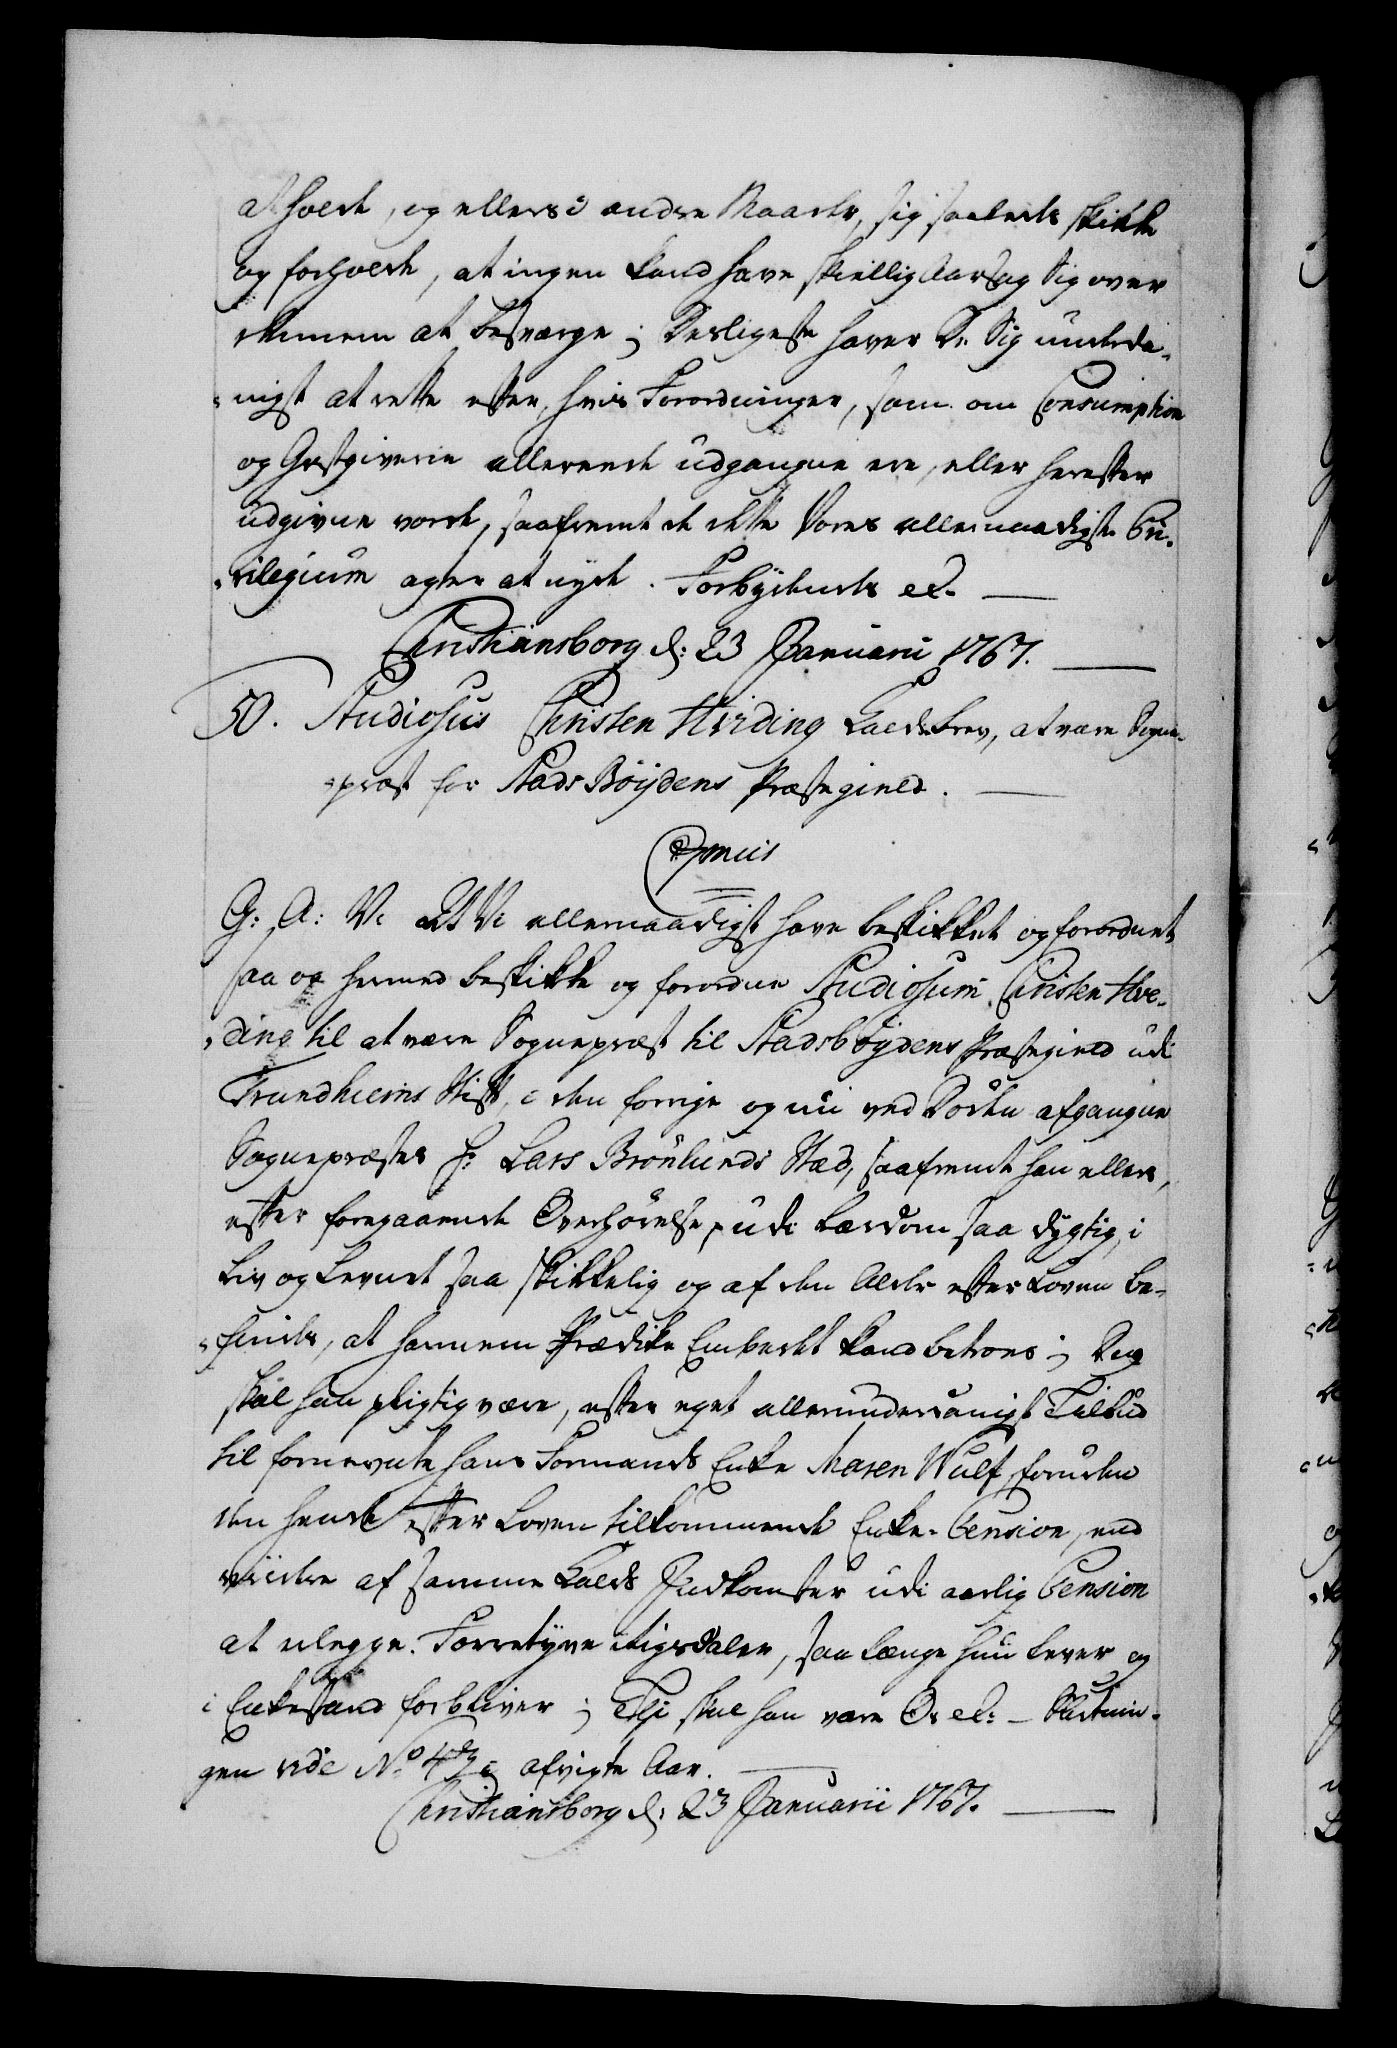 at holde, og ellers i andre Maader, sig saaleds skikke
og forholde, at ingen kand have skiellig Aarsag sig over
dennem at besværge; Desligeste haver De Sig underda-
nigst at rette efter, hvis Forordninger, som om Consumption
og Gæstgiverie allereede udgangne ere, eller herefter
udgivne vorde, saafremt de dette Vores allernaadigste Pri-
vilegium agter at nyde. Forbydendes etc.
Christiansborg d: 23 Januarii 1767.
50. Studiosus Christen Hvidding Kaldsbrev, at være Sogne-
præst for Stads Böÿdens Præstegield.
C7mus
G: A: V: At Vi allernaadigst have beskikket og forordnet,
saa og hermed beskikke og forordne Studiosum Christen Hve-
ding til at være Sognepræst til Stadsböÿdens Præstegield udi
Trundhiems Stift, i den forrige og nu ved Døden afgangne
Sognepræstes Hr Lars Brönlunds Sted, saafremt han ellers,
efter foregaaende Overhörelse, udi Lærdom saa dygtig, i
Liv og Levnet saa skikkelig og af den Alder efter Loven be-
findes, at hannem Prædike Embedet kand betroes; Dog
skal han pligtig være, efter eget allerunderdanigst Tilbud
til fornevnte hans Formands Enke Maren Wulf, foruden
den hende efter Loven tilkommende Enke-Pension, end
viidere af samme Kalds Indkomster udi aarlig Pension
at erlegge Fyrretyve Rigsdaler, saa længe hun lever og
i Enkestand forbliver; Thi skal han være O: etc: - Slutnin-
gen vide No 47 i afvigte Aar.
Christiansborg d: 23 Januarii 1767.